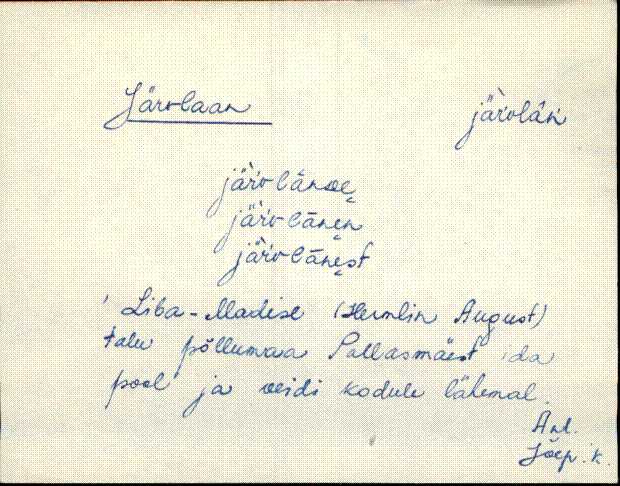 Järvlaan järvlǟn
järvlānde
järvlānen
järvlānest
Liba-Madise (Hermlin August)
talu põllumaa Pallasmäest ida
pool ja veidi kodule lähemal.
Ant.
Jõep. k.